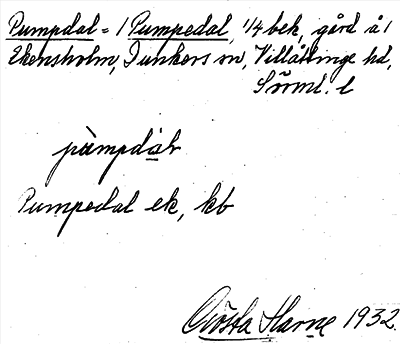 Pumpdal = / Pumpedal, 1/4 bek, gård å /
Ekensholm, Dunkers sn, Villåttinge hd,
Sörml. l
pàmpdàlv
Pumpedal ek, kb
Gösta Harne 1932.